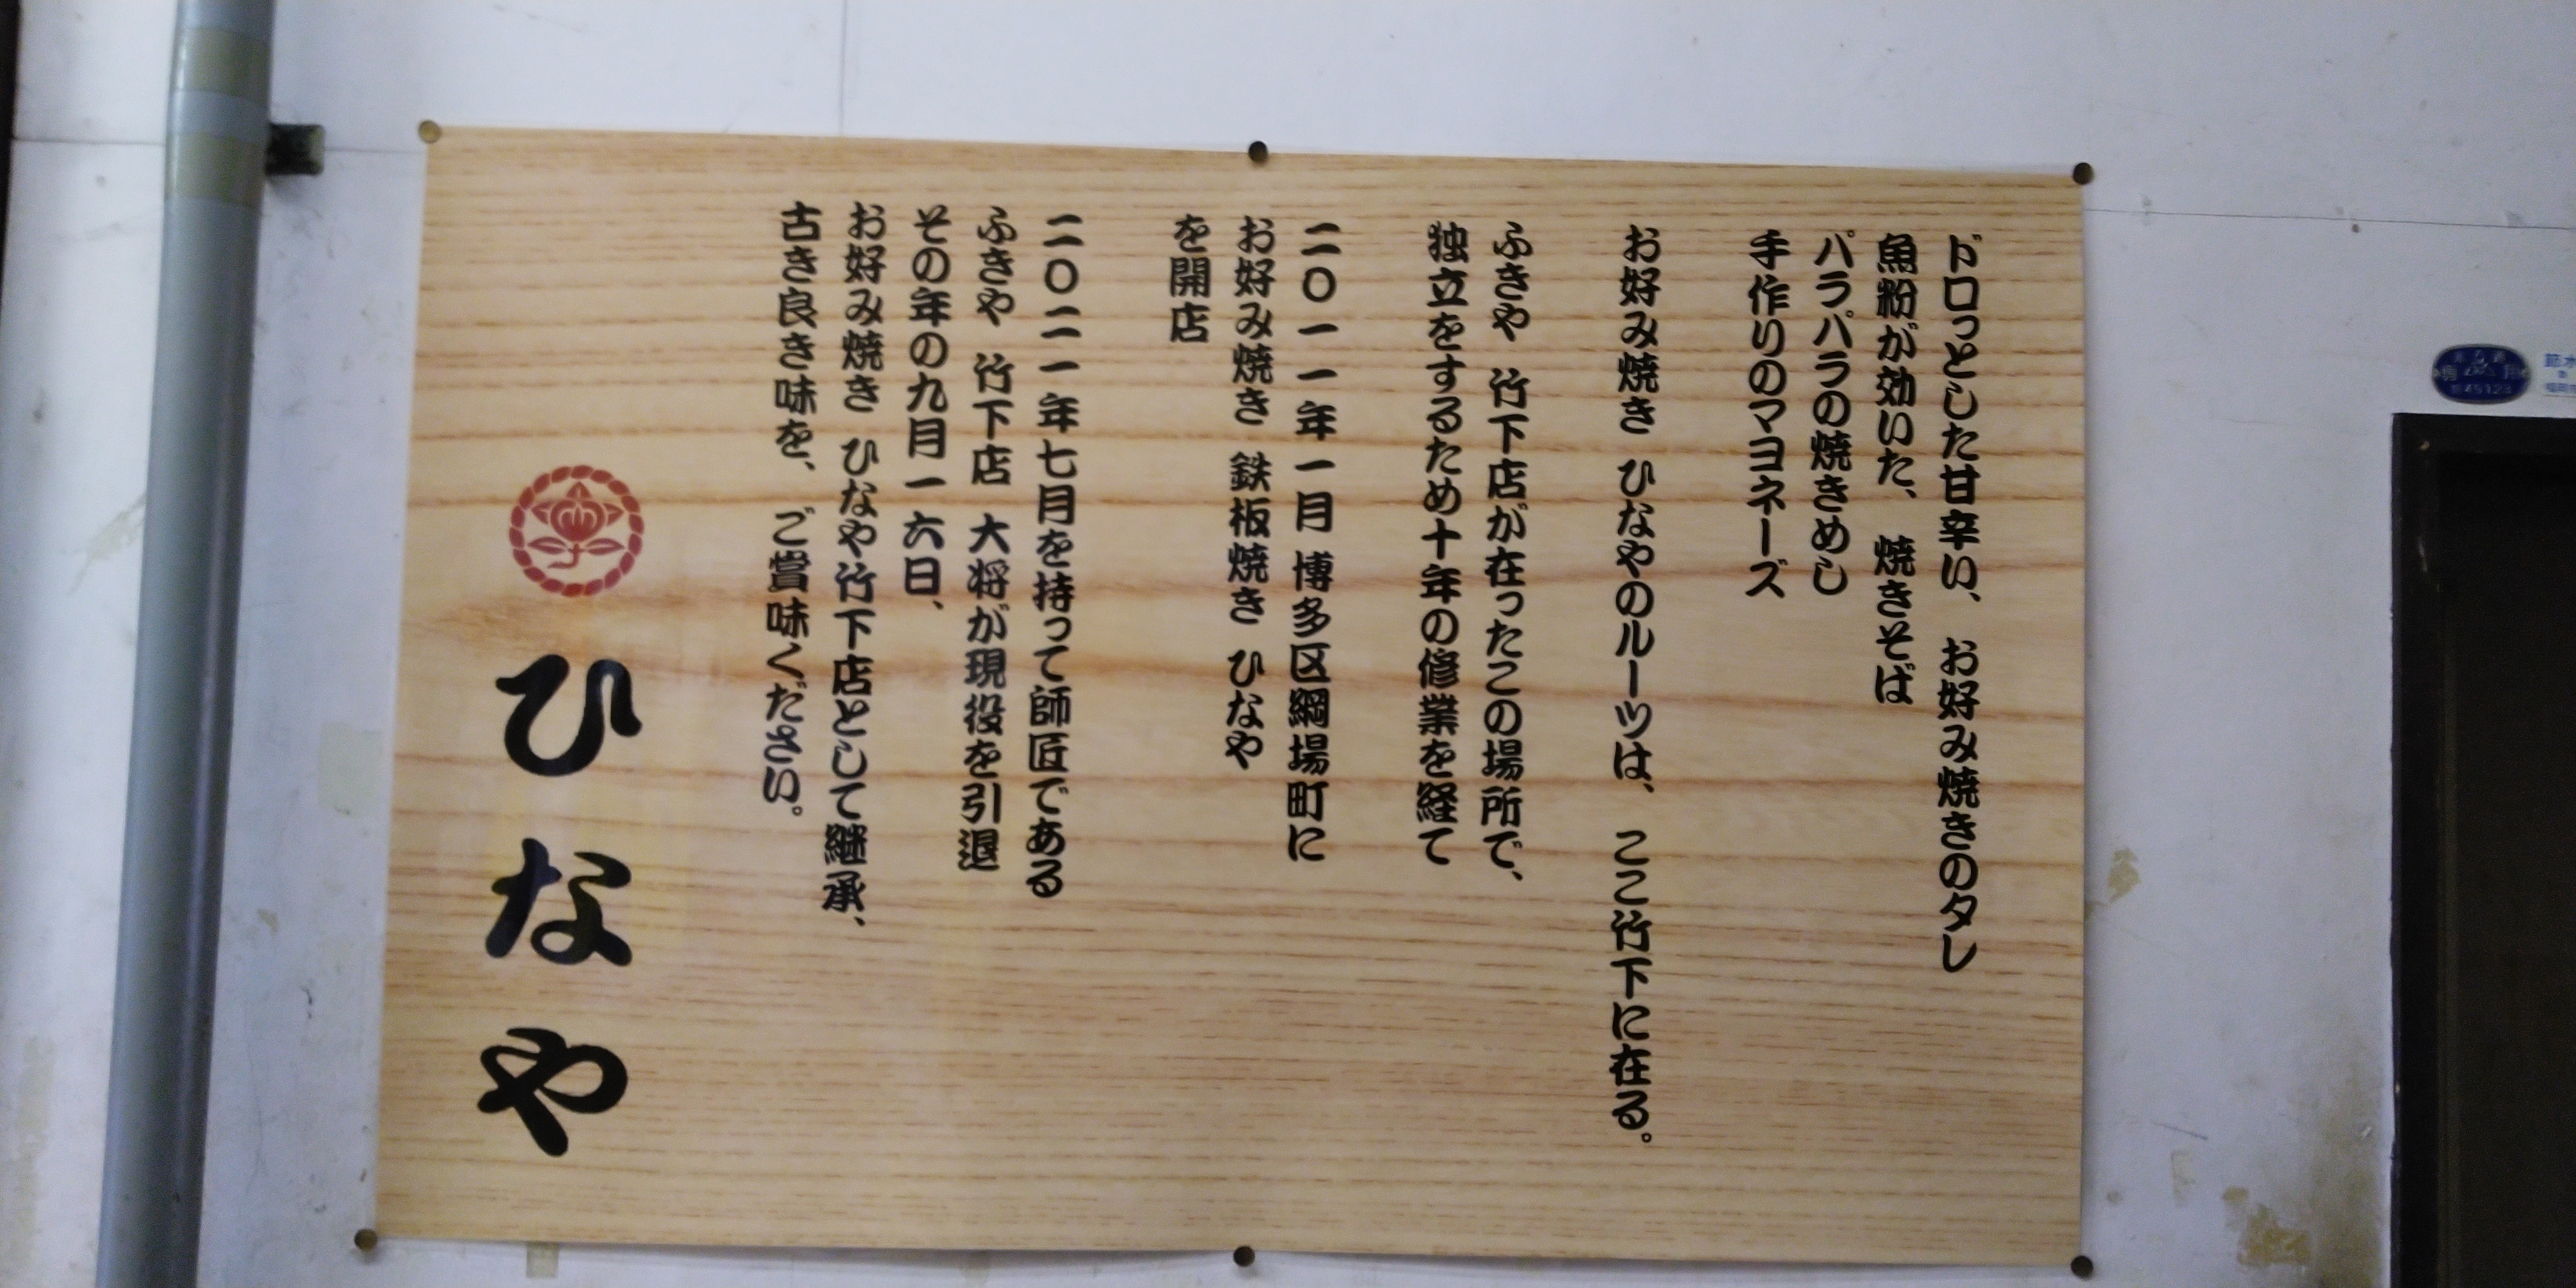 ドロっとした甘辛い、お好み焼きのタレ
魚粉が効いた、焼きそば
パラパラの焼きめし
手作りのマヨネーズ
お好み焼き ひなやのルーツは、ここ竹下に在る。
ふきや 竹下店が在ったこの場所で、
独立をするため十年の修業を経て
二〇一一年一月 博多区綱場町に
お好み焼き 鉄板焼き ひなや
を開店
二〇二一年七月を持って師匠である
ふきや 竹下店 大将が現役を引退
その年の九月一六日、
お好み焼き ひなや竹下店として継承、
古き良き味を、ご賞味ください。
ひなや